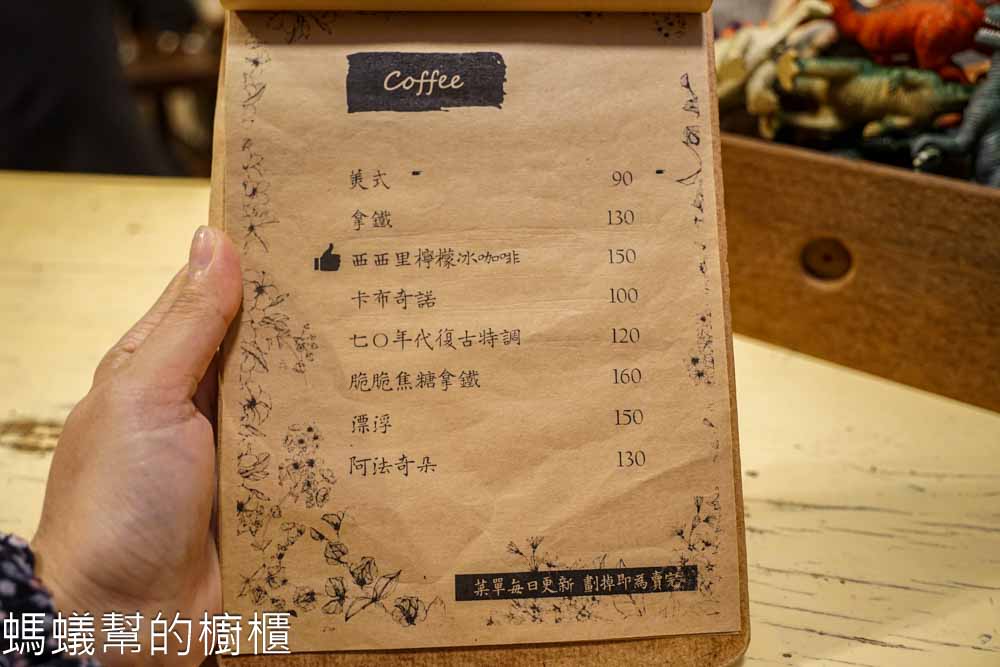 Coffee
美式 90
拿鐵 130
西西里檸檬冰咖啡 150
卡布奇諾 100
七〇年代復古特調 120
脆脆焦糖拿鐵 160
漂浮 150
阿法奇朵 130
菜單每日更新 劃掉即為賣完
螞蟻幫的櫥櫃